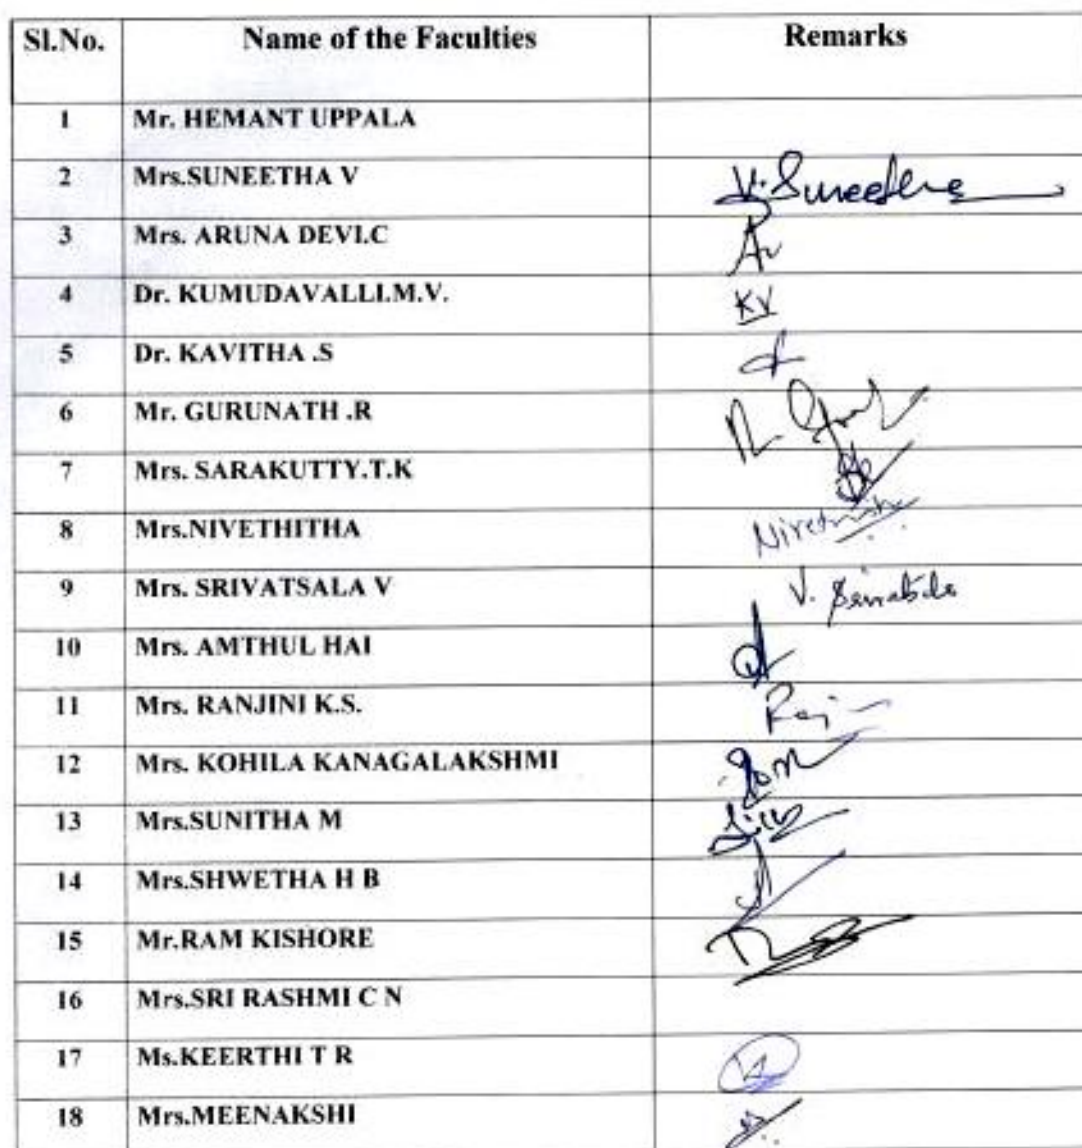 Sl.No. Name of the Faculties Remarks
1 Mr. HEMANT UPPALA
2 Mrs.SUNEETHA V V. Suneetha
3 Mrs. ARUNA DEVI.C
4 Dr. KUMUDAVALLI.M.V. KV
5 Dr. KAVITHA .S
6 Mr. GURUNATH .R
7 Mrs. SARAKUTTY.T.K
8 Mrs.NIVETHITHA
9 Mrs. SRIVATSALA V
10 Mrs. AMTHUL HAI
11 Mrs. RANJINI K.S.
12 Mrs. KOHILA KANAGALAKSHMI
13 Mrs.SUNITHA M
14 Mrs.SHWETHA H B
15 Mr.RAM KISHORE
16 Mrs.SRI RASHMI C N
17 Ms.KEERTHI T R
18 Mrs.MEENAKSHI